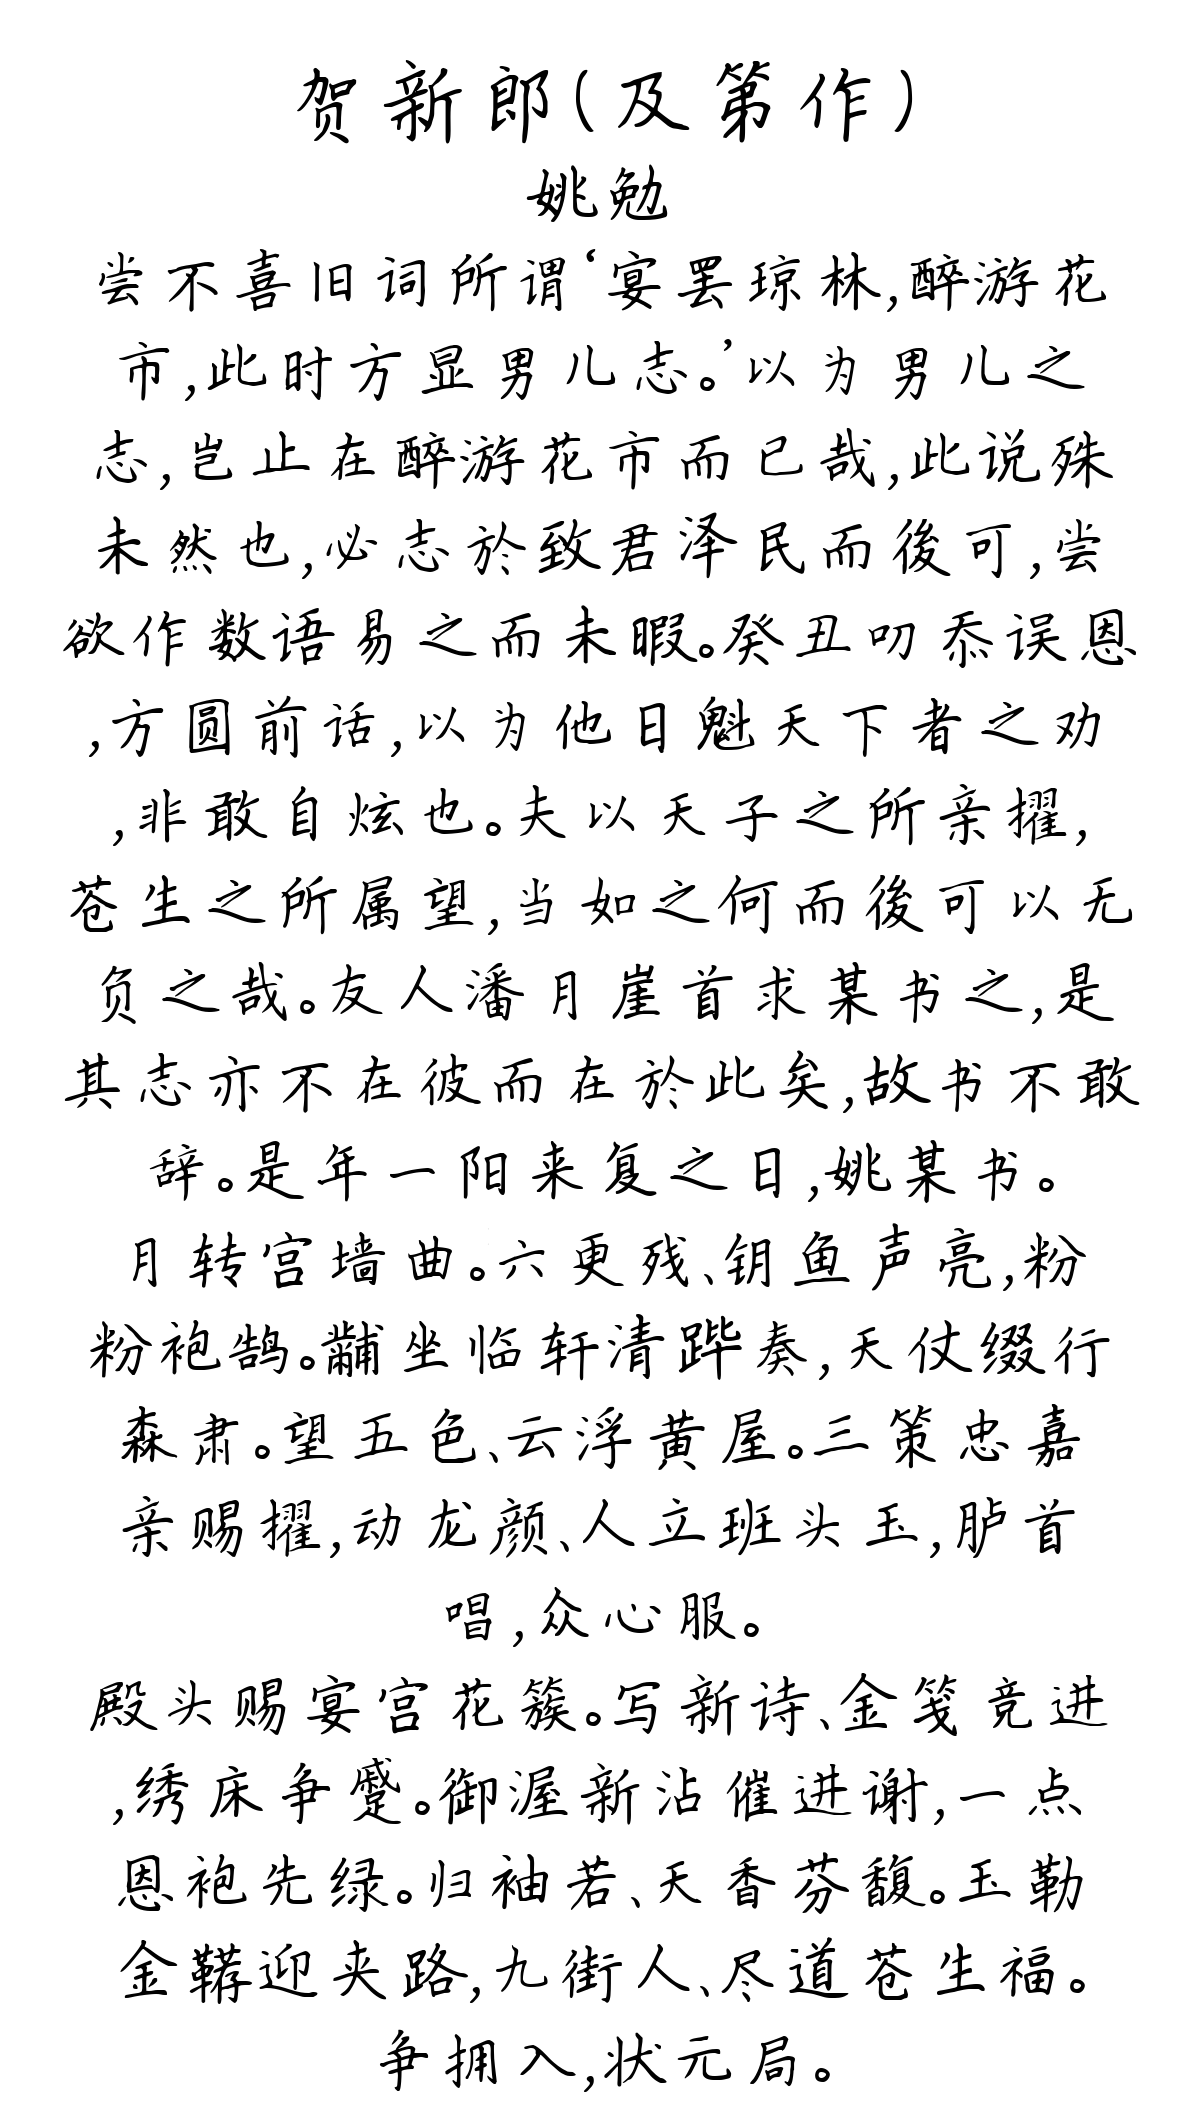 贺新郎(及第作)
姚勉
尝不喜旧词所谓‘宴罢琼林,醉游花
市,此时方显男儿志。’以为男儿之
志,岂止在醉游花市而已哉,此说殊
未然也,必志於致君泽民而後可,尝
欲作数语易之而未暇。癸丑叨忝误恩
,方圆前话,以为他日魁天下者之劝
,非敢自炫也。夫以天子之所亲擢,
苍生之所属望,当如之何而後可以无
负之哉。友人潘月崖首求某书之,是
其志亦不在彼而在於此矣,故书不敢
辞。是年一阳来复之日,姚某书。
月转宫墙曲。六更残、钥鱼声亮,粉
粉袍鹄。黼坐临轩清跸奏,天仗缀行
森肃。望五色、云浮黄屋。三策忠嘉
亲赐擢,动龙颜、人立班头玉,胪首
唱,众心服。
殿头赐宴宫花簇。写新诗、金笺竞进
,绣床争蹙。御渥新沾催进谢,一点
恩袍先绿。归袖若、天香芬馥。玉勒
金鞯迎夹路,九街人、尽道苍生福。
争拥入,状元局。